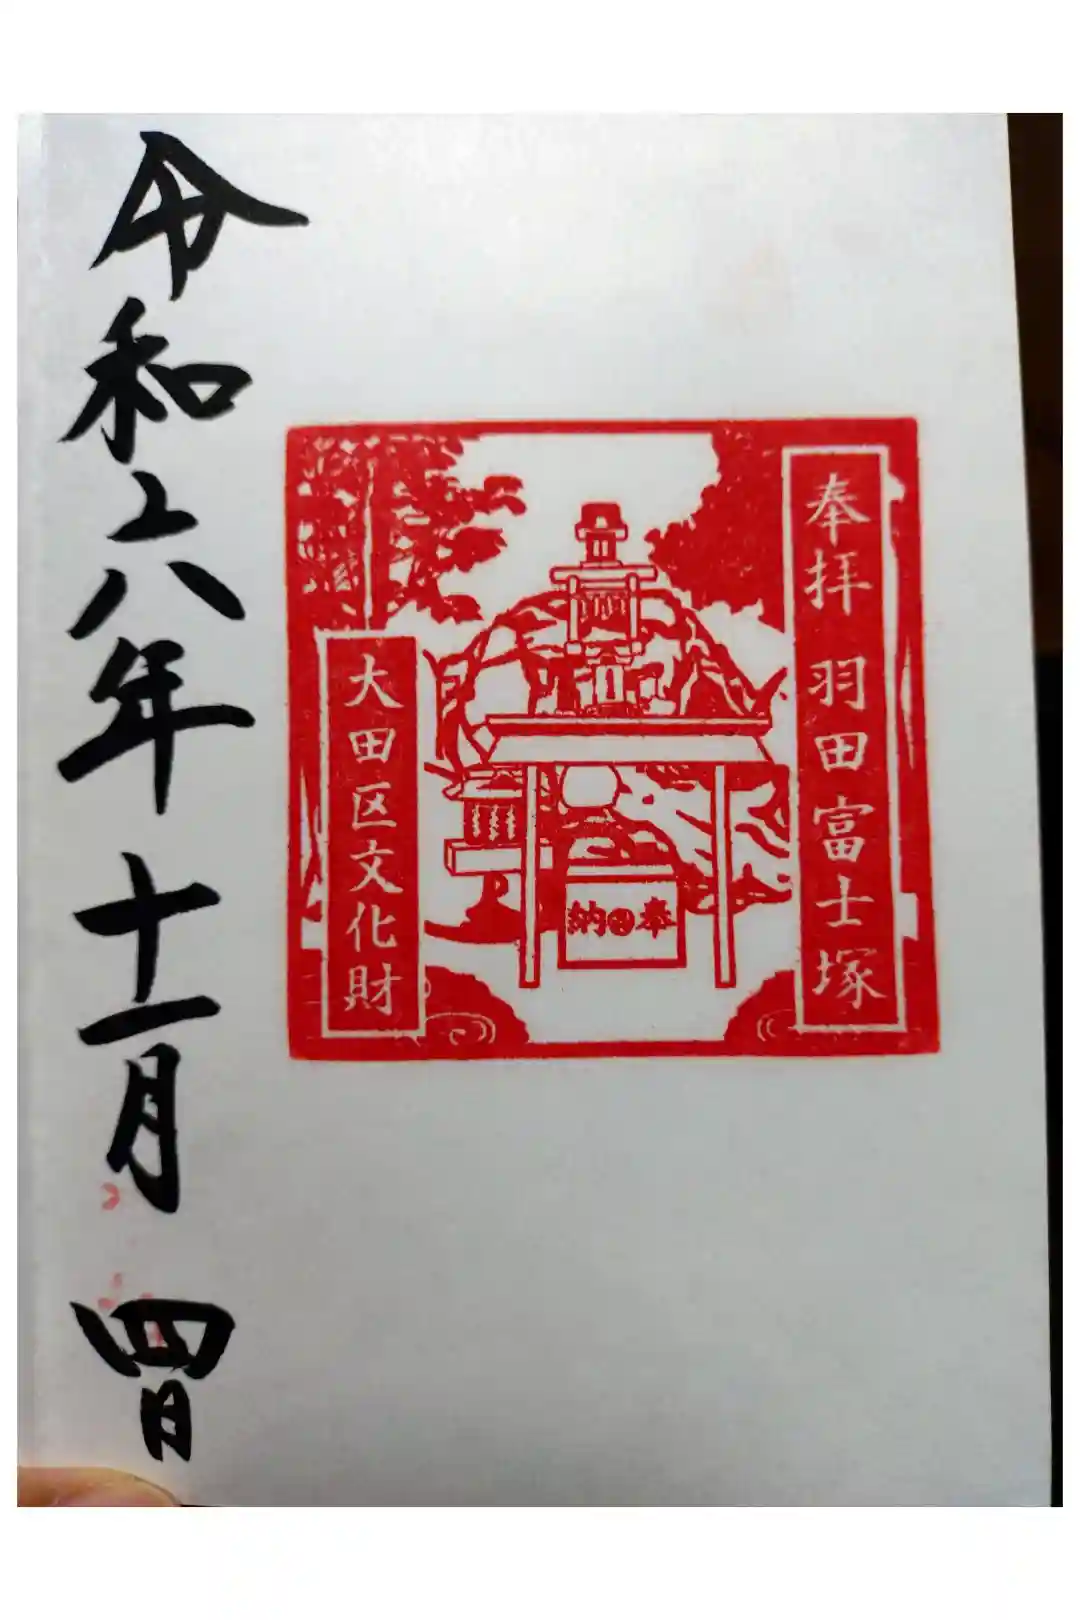 奉拝 羽田富士塚
奉納
大田区文化財
令和六年 十一月 四日